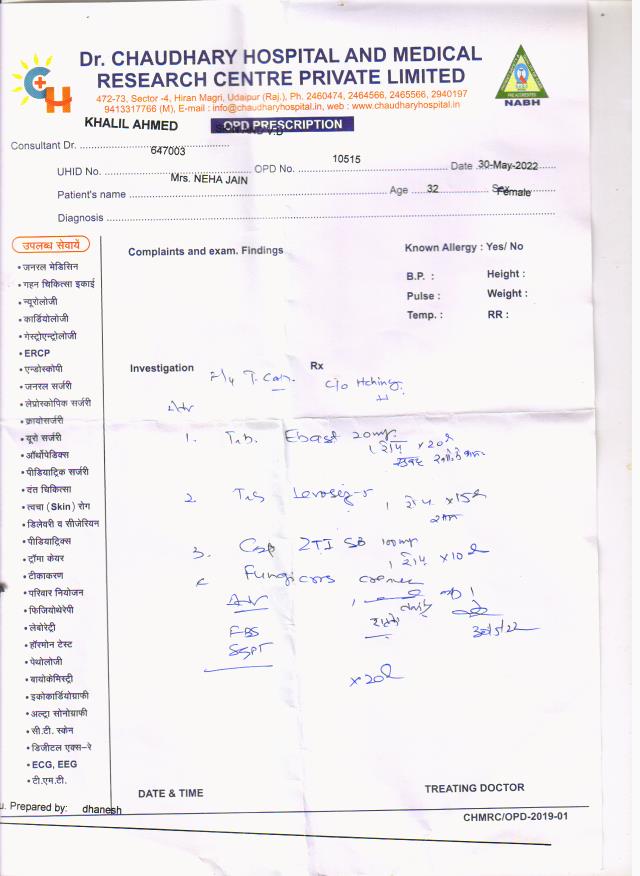 Dr. CHAUDHARY HOSPITAL AND MEDICAL
RESEARCH CENTRE PRIVATE LIMITED
472-73, Sector -4, Hiran Magri, Udaipur (Raj.), Ph. 2460474, 2464566, 2465566, 2940197
9413317766 (M), E-mail : info@chaudharyhospital.in, web : www.chaudharyhospital.in
CH
NABH
KHALIL AHMED
OPD PRESCRIPTION
Consultant Dr.
UHID No. 647003 OPD No. 10515 Date 30-May-2022
Patient's name Mrs. NEHA JAIN Age 32 Sex Female
Diagnosis
उपलब्ध सेवायें
• जनरल मेडिसिन
• गहन चिकित्सा इकाई
• न्यूरोलोजी
• कार्डियोलोजी
• गेस्ट्रोएन्ट्रोलोजी
• ERCP
• एन्डोस्कोपी
• जनरल सर्जरी
• लेप्रोस्कोपिक सर्जरी
• क्रायोसर्जरी
• यूरो सर्जरी
• ऑर्थोपेडिक्स
• पीडियाट्रिक सर्जरी
• दंत चिकित्सा
• त्वचा (Skin) रोग
• डिलेवरी व सीजेरियन
• पीडियाट्रिक्स
• ट्रॉमा केयर
• टीकाकरण
• परिवार नियोजन
• फिजियोथेरेपी
• लेबोरेट्री
• हॉरमोन टेस्ट
• पेथोलोजी
• बायोकेमिस्ट्री
• इकोकार्डियोग्राफी
• अल्ट्रा सोनोग्राफी
• सी.टी. स्केन
• डिजीटल एक्स-रे
• ECG, EEG
• टी.एम.टी.
Complaints and exam. Findings
Known Allergy : Yes/ No
B.P. : Height :
Pulse : Weight :
Temp. : RR :
Investigation Rx
c/o Itching
1. Tab. Ebast 20mg
x 20d
2. Tab
x 15d
3. Cap ZTI SB 100mg
x 10d
FBS
SGPT
30/5/22
x 20d
DATE & TIME
TREATING DOCTOR
u. Prepared by: dhanesh
CHMRC/OPD-2019-01